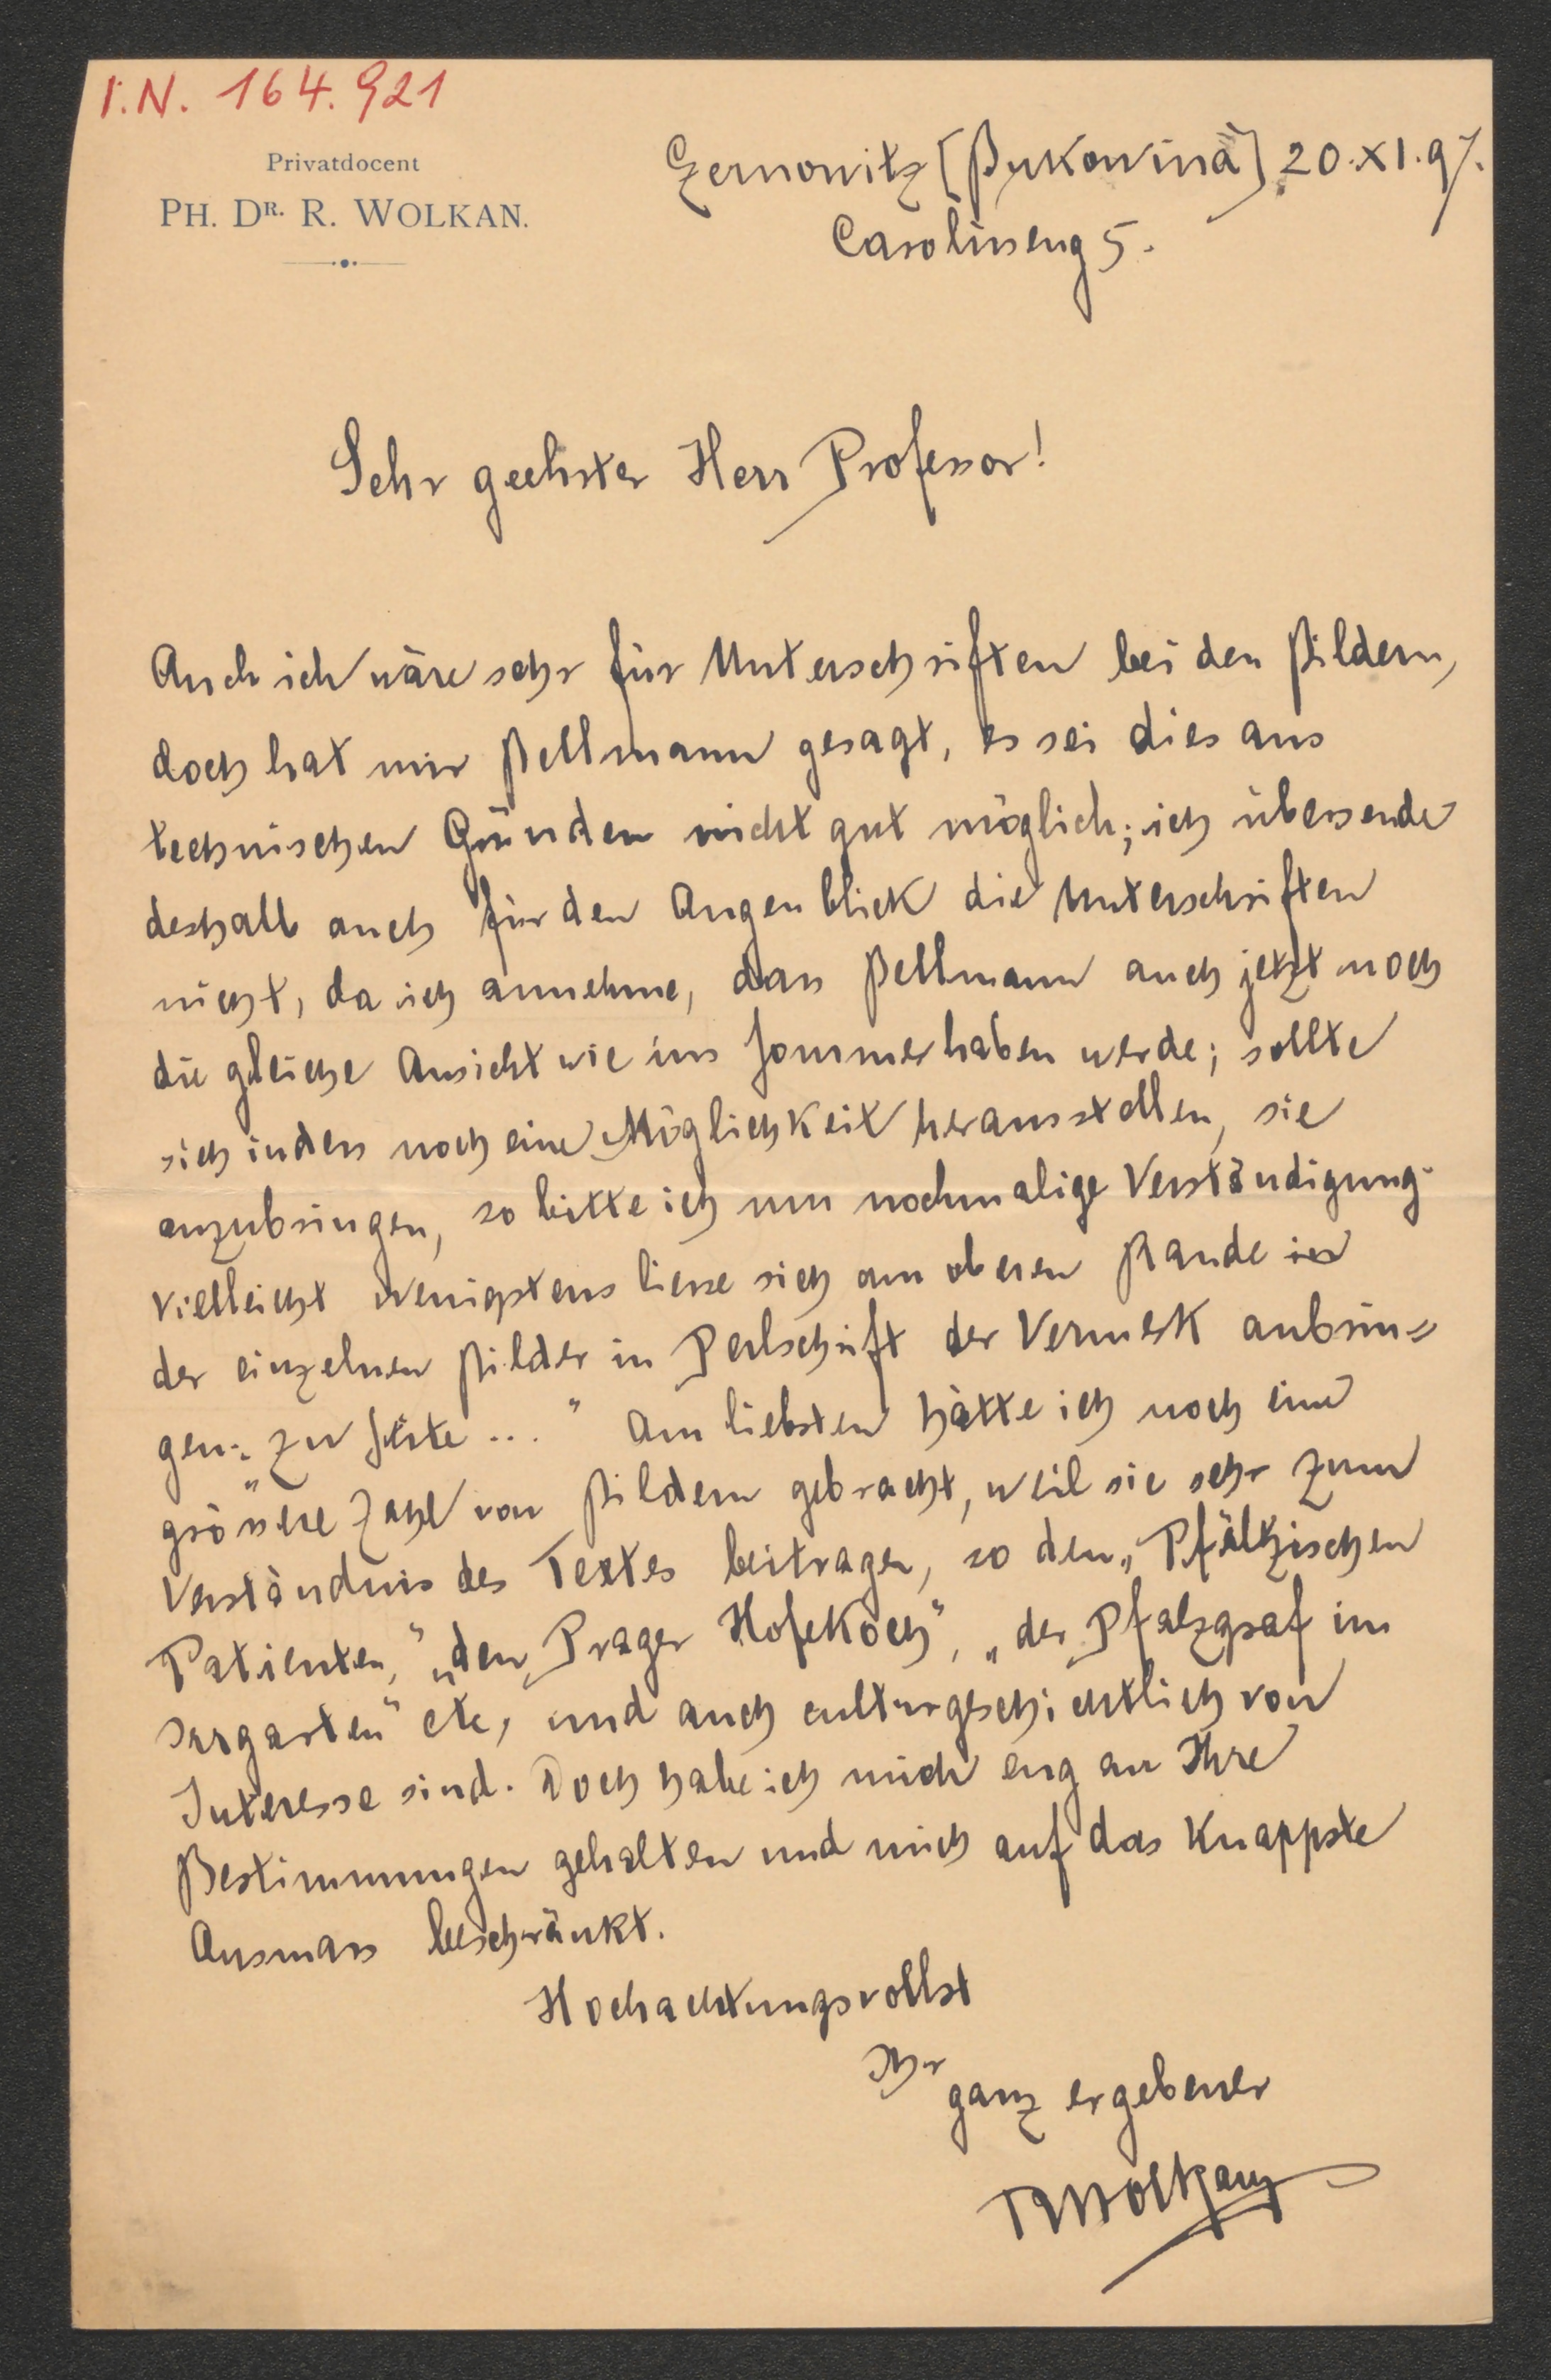 I.N. 164.921
Privatdocent
PH. DR. R. WOLKAN.
Czernowitz [Bukowina] 20.XI.97.
Carolineng 5.
Sehr geehrter Herr Professor!
Auch ich wäre sehr für Unterschriften bei den Bildern,
doch hat mir Bellmann gesagt, es sei dies aus
technischen Gründen nicht gut möglich; ich übersende
deshalb auch für den Augenblick die Unterschriften
nicht, da ich annehme, dass Bellmann auch jetzt noch
die gleiche Ansicht wie im Sommer haben werde; sollte
sich indess noch eine Möglichkeit herausstellen, sie
anzubringen, so bitte ich um nochmalige Verständigung.
Vielleicht wenigstens liesse sich am oberen Rande
der einzelnen Bilder in Perlschrift der Vermerk anbrin=
gen: „zu Seite ..." Am liebsten hätte ich noch eine
grössere Zahl von Bildern gebracht, weil sie sehr zum
Verständnis des Textes beitragen, so den „Pfältzischen
Patienten," „den Prager Hofekoch", „der Pfalzgraf im
Irrgarten" etc, und auch culturgeschichtlich von
Interesse sind. Doch habe ich mich eng an Ihre
Bestimmungen gehalten und mich auf das Knappste
Ausmass beschränkt.
Hochachtungsvollst
Ihr
ganz ergebener
RWolkan